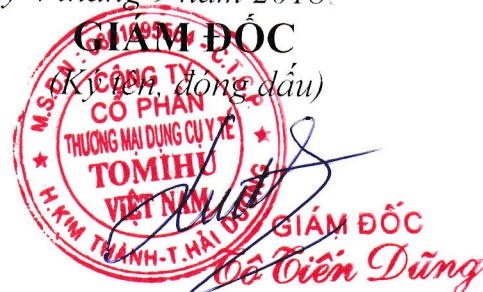 tháng năm 2018
GIÁM ĐỐC
(Ký tên, đóng dấu)
M.S.D.N: - C.T.C.P
CÔNG TY
CỔ PHẦN
THƯƠNG MẠI DỤNG CỤ Y TẾ
TOMIHU
VIỆT NAM
H.KIM THÀNH-T.HẢI
GIÁM ĐỐC
Tô Tiến Dũng